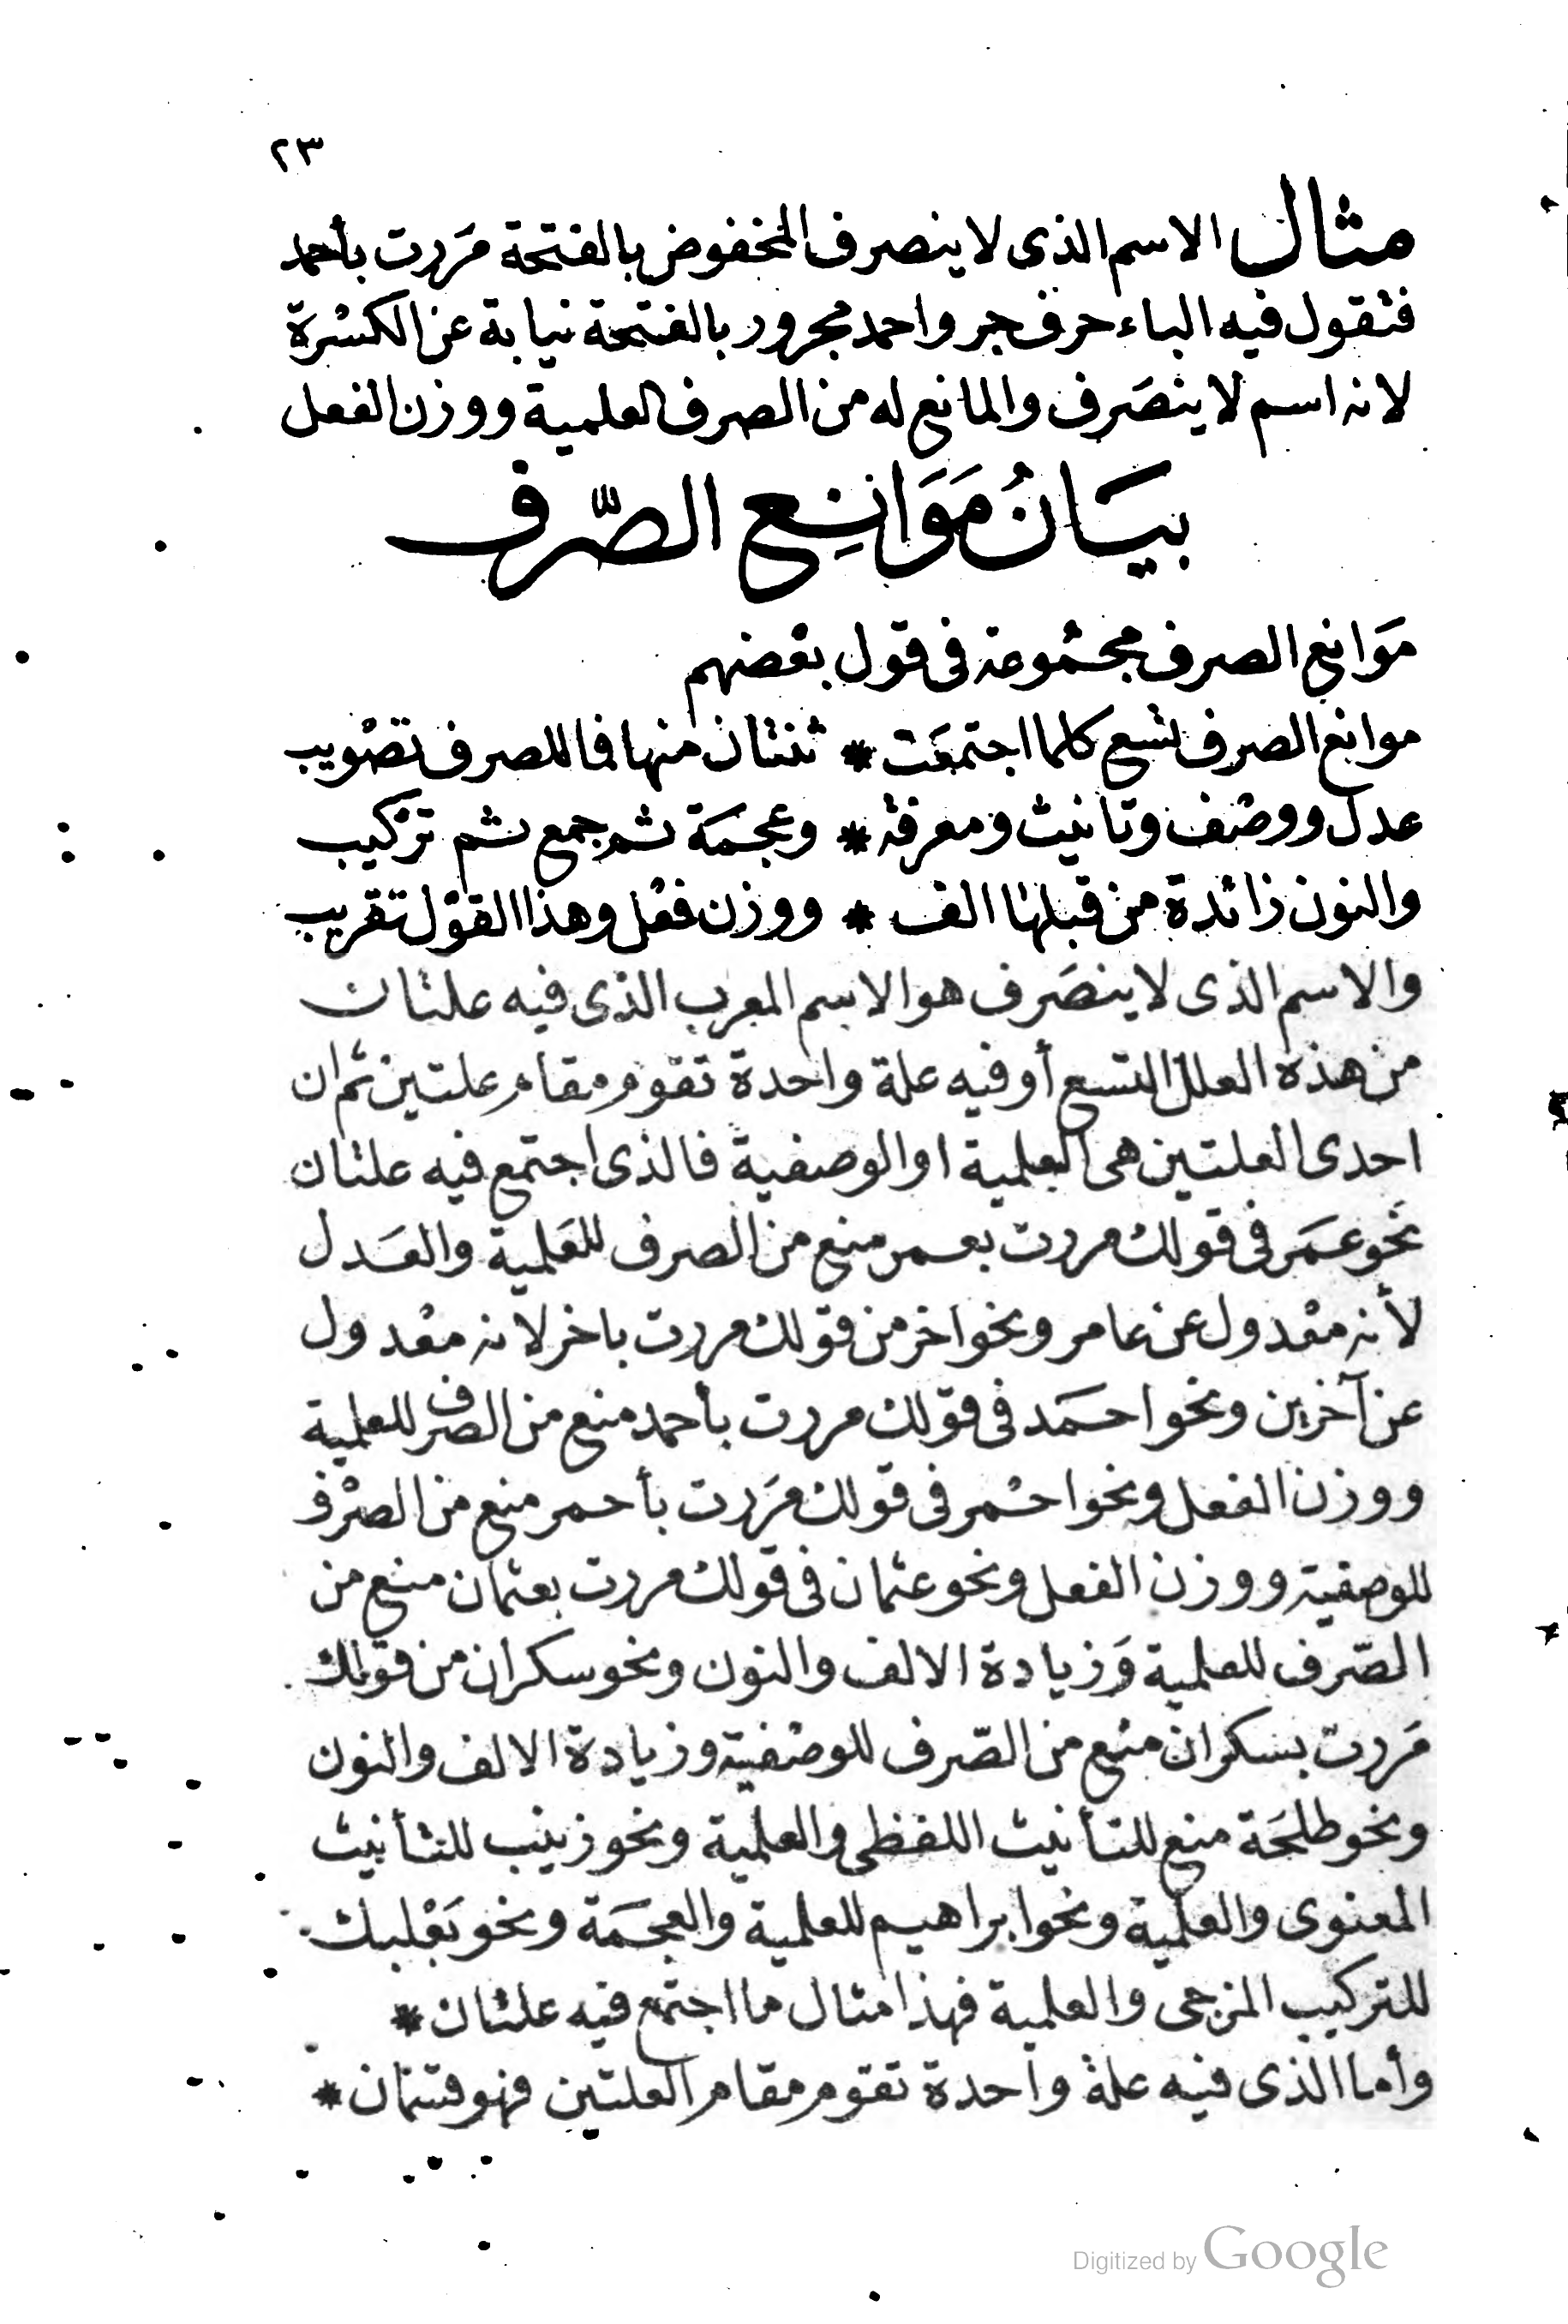 ٢٣
مثال الاسم الذى لا ينصرف المخفوض بالفتحة مَررت بأحمد
فتقول فيه الباء حرف جر واحمد مجرور بالفتحة نيابة عن الكسْرة
لانه اسم لا ينصَرف والمانع له من الصرف العلمية ووزن الفعل
بيَانُ مَوَانِع الصّرف
مَوانع الصرف مجمْوعة فى قول بعْضهم
موانع الصرف تسْع كلما اجتمعَت * ثنتان منها فما للصرف تصْويب
عدل ووصْف وتانيث ومعرفة * وعجمَة ثم جمع ثم ترْكيب
والنون زائدة من قبلها الف * ووزن فعْل وهذا القوْل تقريب
والاسم الذى لا ينصَرف هو الاسم المعرب الذى فيه علتان
من هذه العلل التسع أو فيه علة واحدة تقوم مقام علتين ثم ان
احدى العلتين هى العلمية او الوصفية فالذى اجتمع فيه علتان
نحو عمَر فى قولك مررت بعمر منع من الصرف للعَلمية والعَدل
لأنه معْدول عن عامر ونحو اخر من قولك مررت باخر لانه معْدول
عن آخرين ونحو احمَد فى قولك مررت بأحمد منع من الصرف للعلمية
ووزن الفعل ونحو احْمر فى قولك مَررت بأحمر منع من الصرْف
للوصفية ووزن الفعل ونحو عثمان فى قولك مررت بعثمان منع من
الصّرف للعلمية وَزيادة الالف والنون ونحو سكران من قولك
مَررت بسكران منع من الصّرف للوصْفية وزيادة الالف والنون
ونحو طلحَة منع للتأنيث اللفظى والعلمية ونحو زينب للتأنيث
المعنوى والعلمية ونحو ابراهيم للعلمية والعجمَة ونحو بَعْلبك
للتركيب المزجى والعلمية فهذا مثال ما اجتمع فيه علتان *
وأما الذى فيه علة واحدة تقوم مقام العلتين فهو قسمان *
Digitized by Google